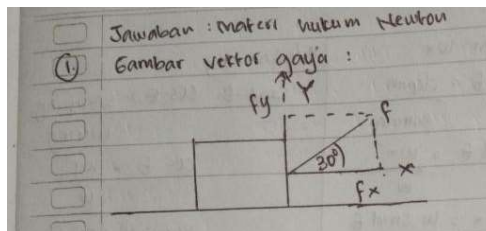 Jawaban : materi hukum Newton
1. Gambar vektor gaya :
fy Y
f
30°
x
fx